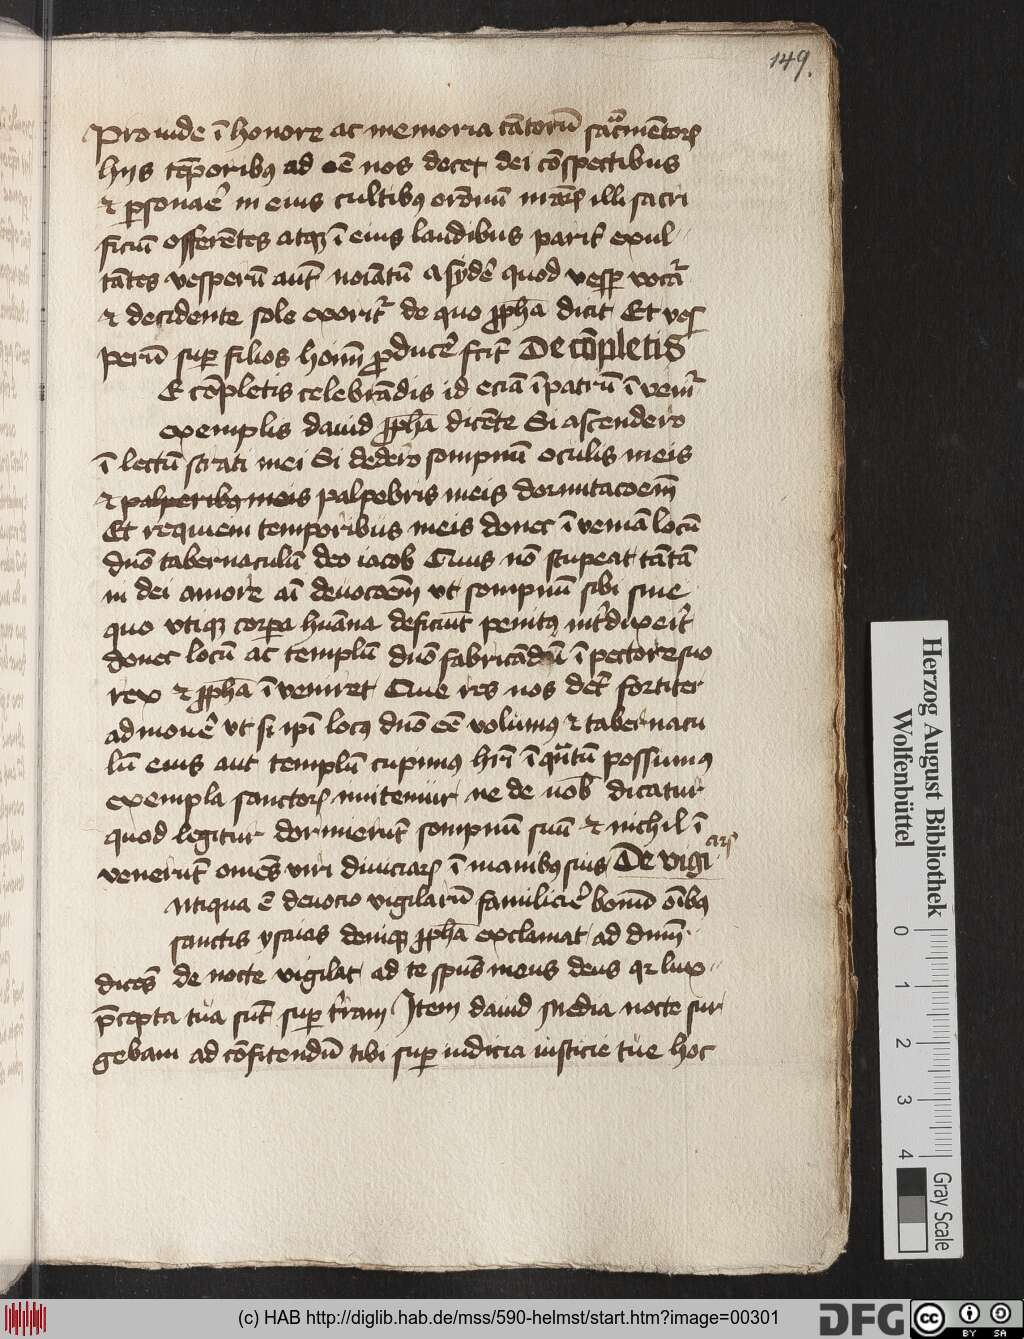 149.
Proinde ī honore ac memoria tātorū sacͣmētoꝝ
hiis tēporibꝯ ad eē nos decet dei cōspectibus
⁊ ꝑsonaꝛe in eius cultibꝯ ordinū nr̄oꝝ illi sacri
ficiū offerētes atqꝫ ī eius laudibus parit̾ exul
tātes vesperū aut̄ noīatū a sydē quod vesꝑ vocat̾
⁊ decidente sole exorit̾ de quo ꝓph̄a dicit Et ves
perū suꝑ filios hoīm ꝓducē fcit̾ De cōpletis
E cōpletis celebrādis id eciā ī patrū ī vem̾
exemplis dauid ꝓph̄a dicēte Si ascendero
ī lectū strati mei Si dedero sompnū oculis meis
⁊ palperibꝯ meis palpebris meis dormitacōem̄
Et requiem temporibus meis donec ī veniā locū
dn̄o tabernaculū deo iacob Cuius nō stupeat tātā
in dei amore aī deuocōem̄ vt sompnū sibi sine
quo vtiqꝫ corꝑa hūana deficiūt penitꝯ int̾dixerit̾
donec locū ac templū dn̄o fabricādū ī pectore suo
rex ⁊ ꝓph̄a ī veniret Que res nos deƀ fortiter
admonē vt si ip̄i locꝯ dn̄o eē volumꝯ ⁊ tabernacu
lū eius aut templū cupimꝯ hr̄i ī qͣntū possumꝯ
exempla sanctoꝝ imitemur ne de nob̄ dicatur
quod legitur dormierūt sompnū suū ⁊ nichil ī
venerūt om̄es viri diuiciaꝝ ī manibꝯ suis De vigi
ciꝝ
Ntiqua ē deuocio vigilarū familiarē bonū oībꝯ
sanctis ysaias deniqꝫ ꝓph̄a exclamat ad dn̄m
dices̄ de nocte vigilat ad te sp̄us meus deus qꝛ lux
p̄cepta tua sūt suꝑ t̾ram Item dauid Media nocte sur
gebam ad cōfitendū tibi suꝑ iudicia iusticie tue hoc
Herzog August Bibliothek
Wolfenbüttel
0
1
2
3
4
Gray Scale
(c) HAB http://diglib.hab.de/mss/590-helmst/start.htm?image=00301
DFG
cc
BY SA